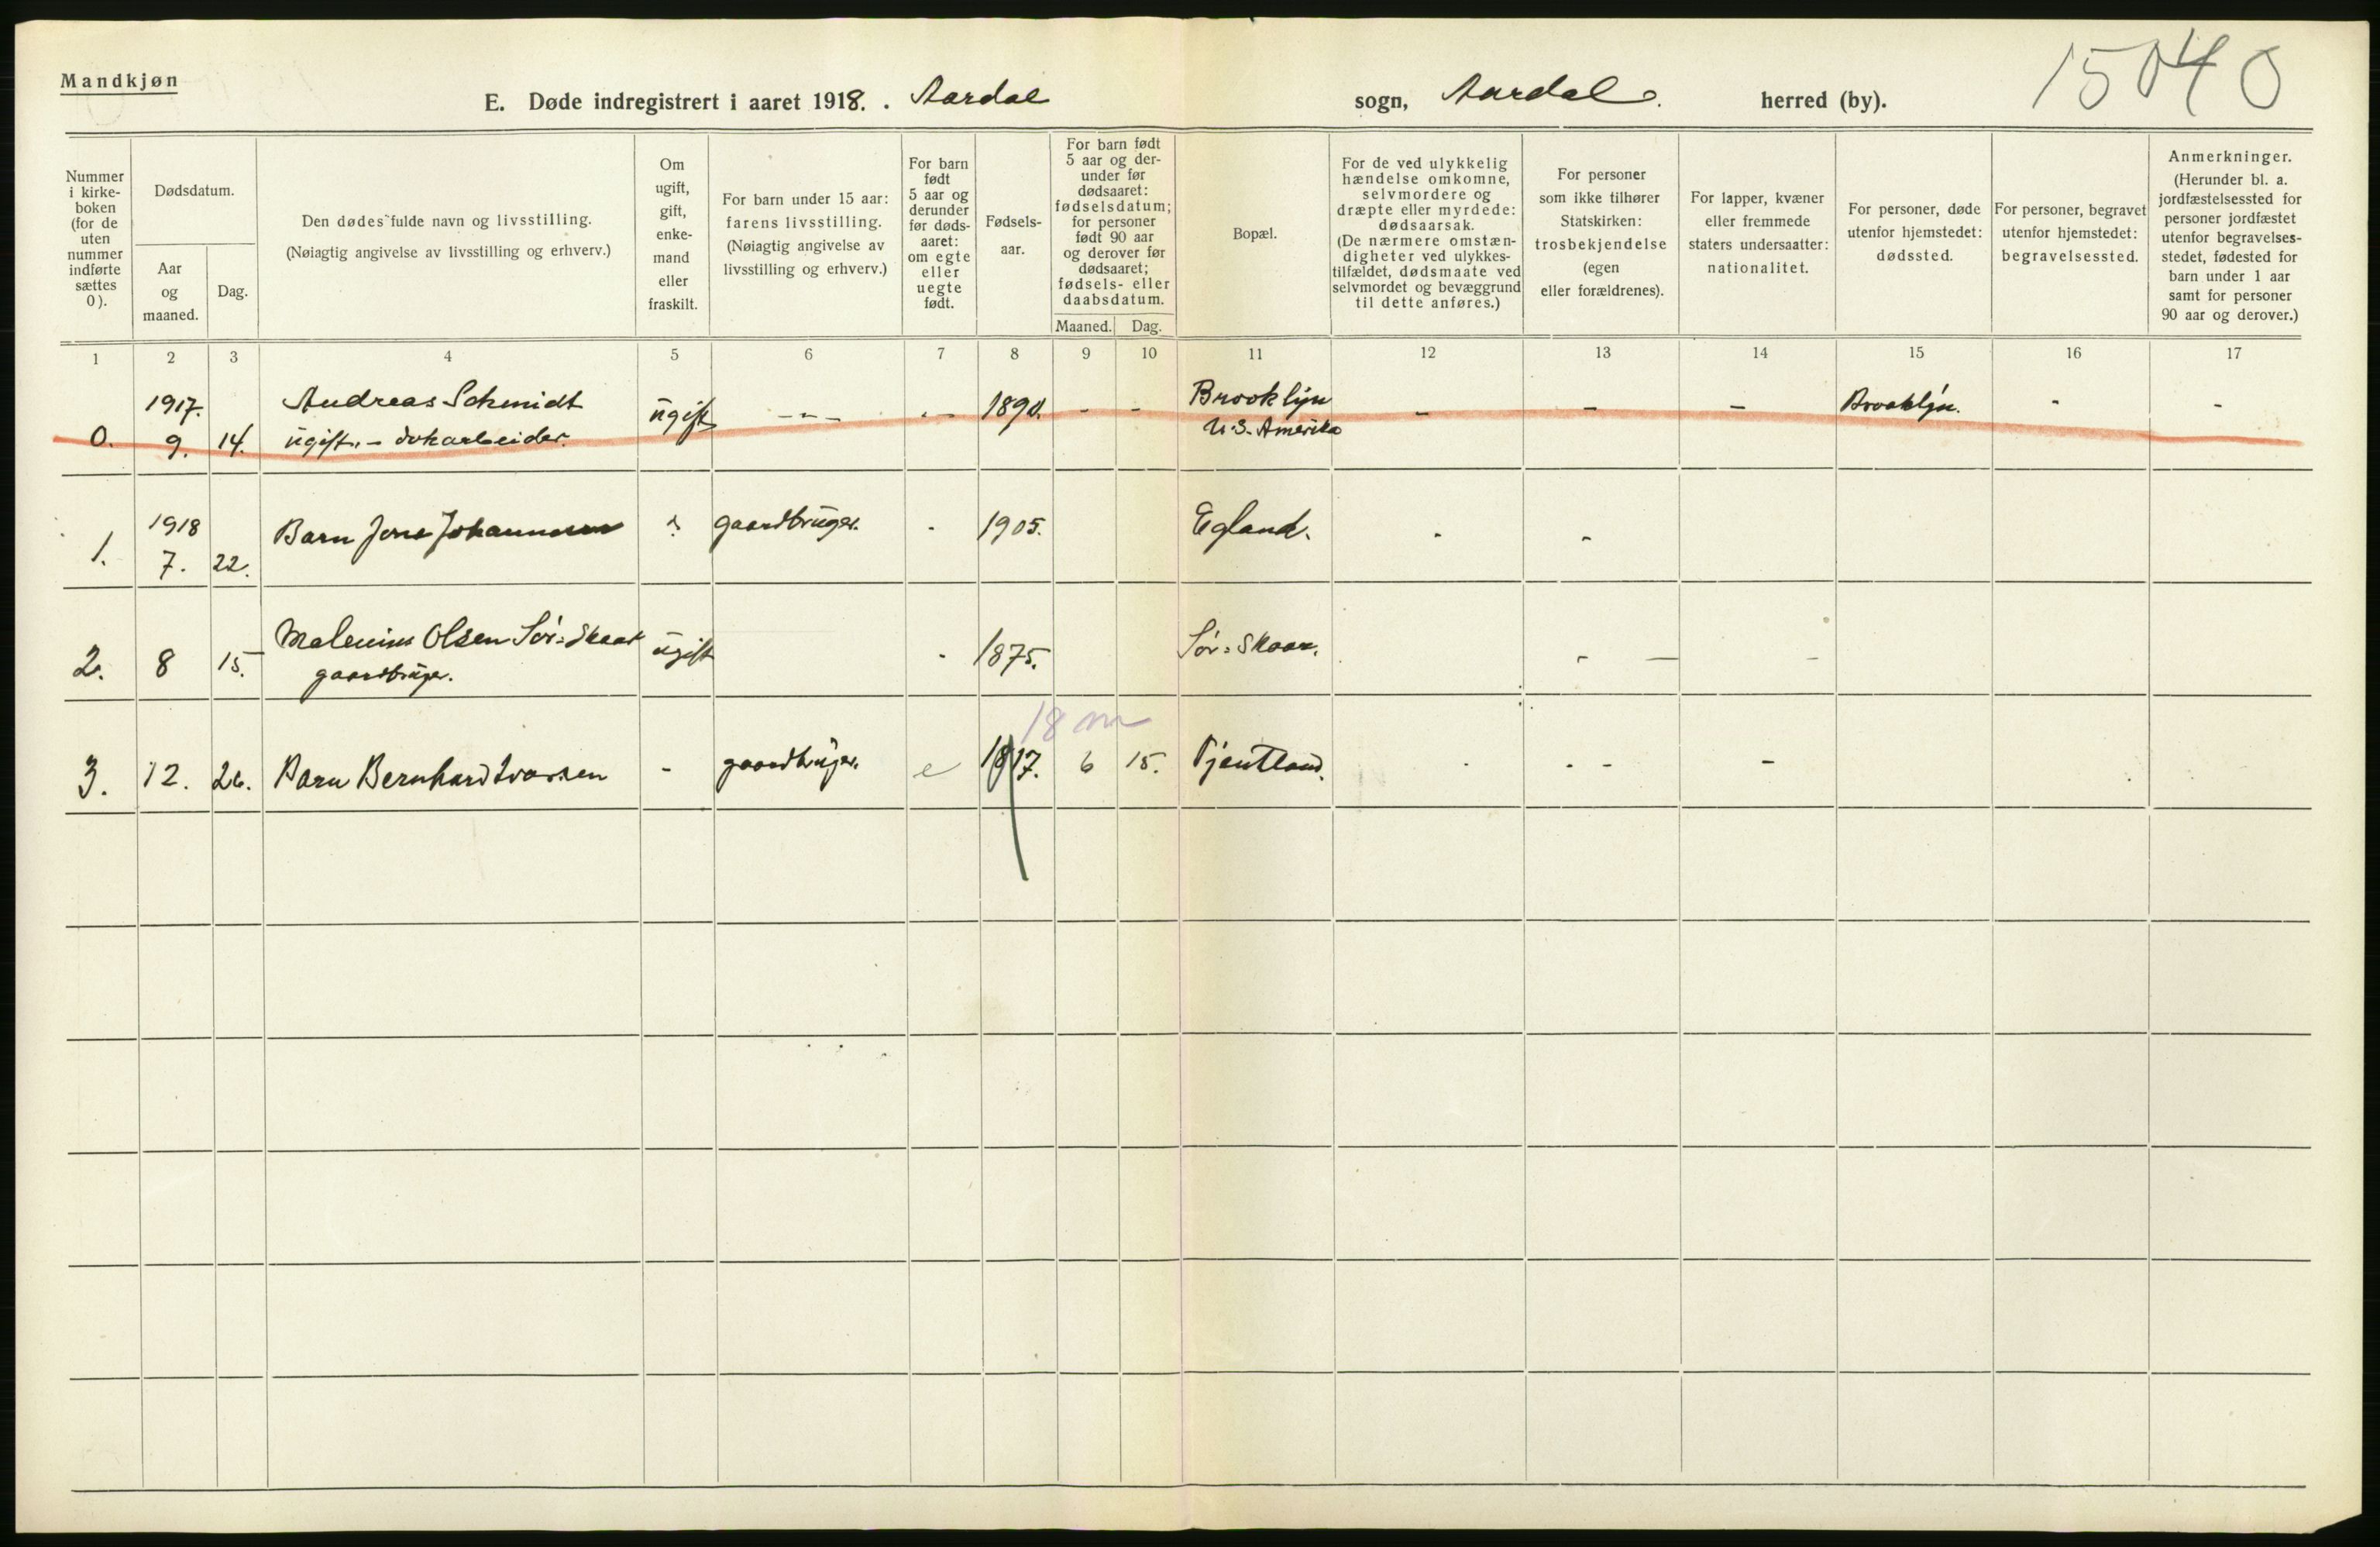 Mandkjøn
15040
E. Døde indregistrert i aaret 1918. . Aardal sogn, Aardal. herred (by).
Nummer
i kirke-
boken
(for de
uten
nummer
indførte
sættes
0).
Dødsdatum.
Aar
og
maaned.
Dag.
Den dødes fulde navn og livsstilling.
(Nøiagtig angivelse av livsstilling og erhverv.)
Om
ugift,
gift,
enke-
mand
eller
fraskilt.
For barn under 15 aar:
farens livsstilling.
(Nøiagtig angivelse av
livsstilling og erhverv.)
For barn
født
5 aar og
derunder
før døds-
aaret:
om egte
eller
uegte
født.
Fødsels-
aar.
For barn født
5 aar og der-
under før
dødsaaret:
fødselsdatum;
for personer
født 90 aar
og derover før
dødsaaret;
fødsels- eller
daabsdatum.
Maaned.
Dag.
Bopæl.
For de ved ulykkelig
hændelse omkomne,
selvmordere og
dræpte eller myrdede:
dødsaarsak.
(De nærmere omstæn-
digheter ved ulykkes-
tilfældet, dødsmaate ved
selvmordet og bevæggrund
til dette anføres.)
For personer
som ikke tilhører
Statskirken:
trosbekjendelse
(egen
eller forældrenes).
For lapper, kvæner
eller fremmede
staters undersaatter:
nationalitet.
For personer, døde
utenfor hjemstedet:
dødssted.
For personer, begravet
utenfor hjemstedet:
begravelsessted.
Anmerkninger.
(Herunder bl. a.
jordfæstelsessted for
personer jordfæstet
utenfor begravelses-
stedet, fødested for
barn under 1 aar
samt for personer
90 aar og derover.)
1 2 3 4 5 6 7 8 9 10 11 12 13 14 15 16 17
1917. Andreas Schmidt ugift - - - - 1890. - - Brooklyn - - - Brooklyn. - -
0. 9. 14. ugift. - dokarbeider. U.S. Amerika
1918 Barn Jone Johannesen gaardbruger. - 1905. Egland. - -
1. 7. 22.
Malenius Olsen Sør=Skaar ugift - 1875. Sør=Skaar. - - -
2. 8 15. gaardbruger.
18 m
3. 12. 26. Barn Bernhard Ivarsen - gaardbruger. e 1917. 6 15. Tjentland. - - - -